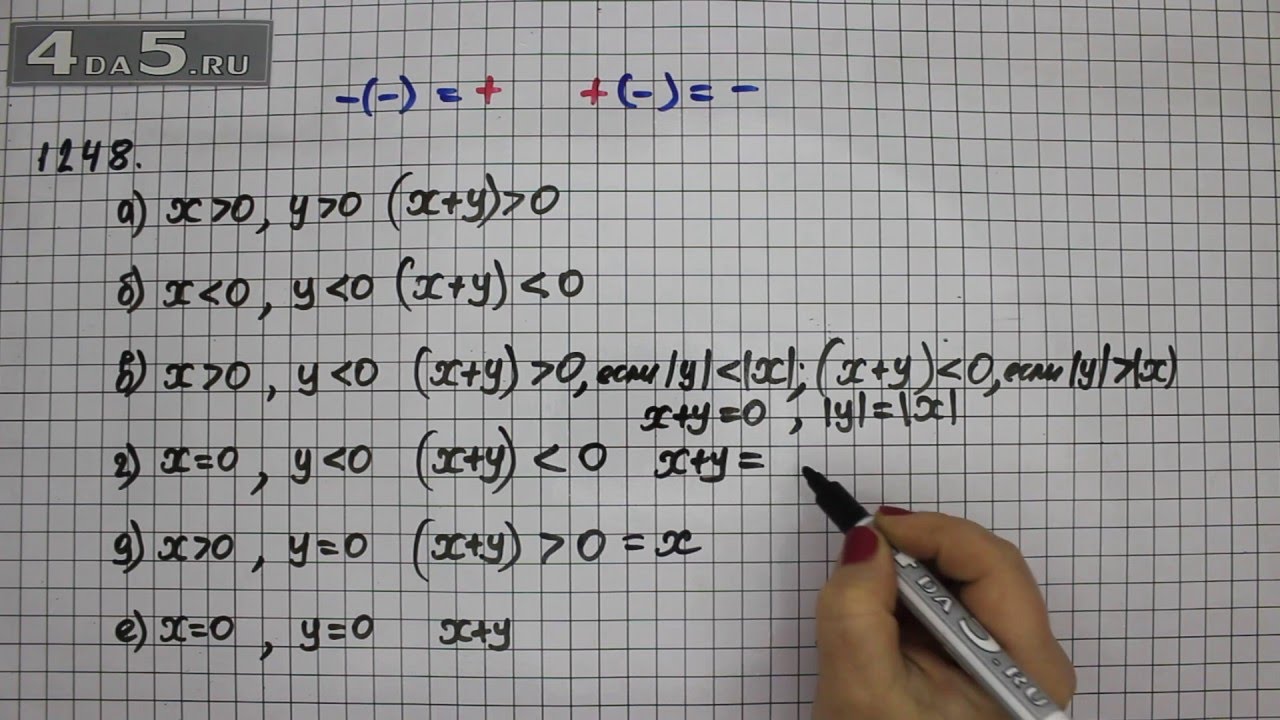 4DA5.RU
-(-) = + +(-) = -
1248.
а) x>0, y>0 (x+y)>0
б) x<0, y<0 (x+y)<0
в) x>0, y<0 (x+y)>0, если |y|<|x|; (x+y)<0, если |y|>|x)
x+y=0, |y|=|x|
г) x=0, y<0 (x+y)<0 x+y=
д) x>0, y=0 (x+y)>0=x
е) x=0, y=0 x+y
4DA5.RU